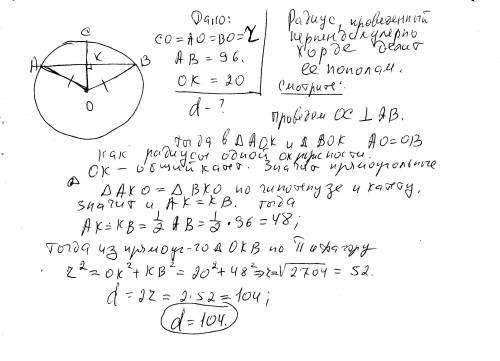 C
A
K
B
O
Дано:
CO = AO = BO = r
AB = 96.
OK = 20
d - ?
Радиус, проведенный
перпендикулярно
хорде делит
ее пополам.
Смотрите:
Проведем OC ⊥ AB.
Тогда в △AOK и △BOK AO = OB
как радиусы одной окружности.
OK - общий катет. Значит прямоугольные
△AKO = △BKO по гипотенузе и катету.
Значит и AK = KB. Тогда
AK = KB = 1/2 AB = 1/2 · 96 = 48;
Тогда из прямоуг-го △OKB по Пифагору
r² = OK² + KB² = 20² + 48² ⇒ r = √2704 = 52.
d = 2r = 2·52 = 104;
d = 104.